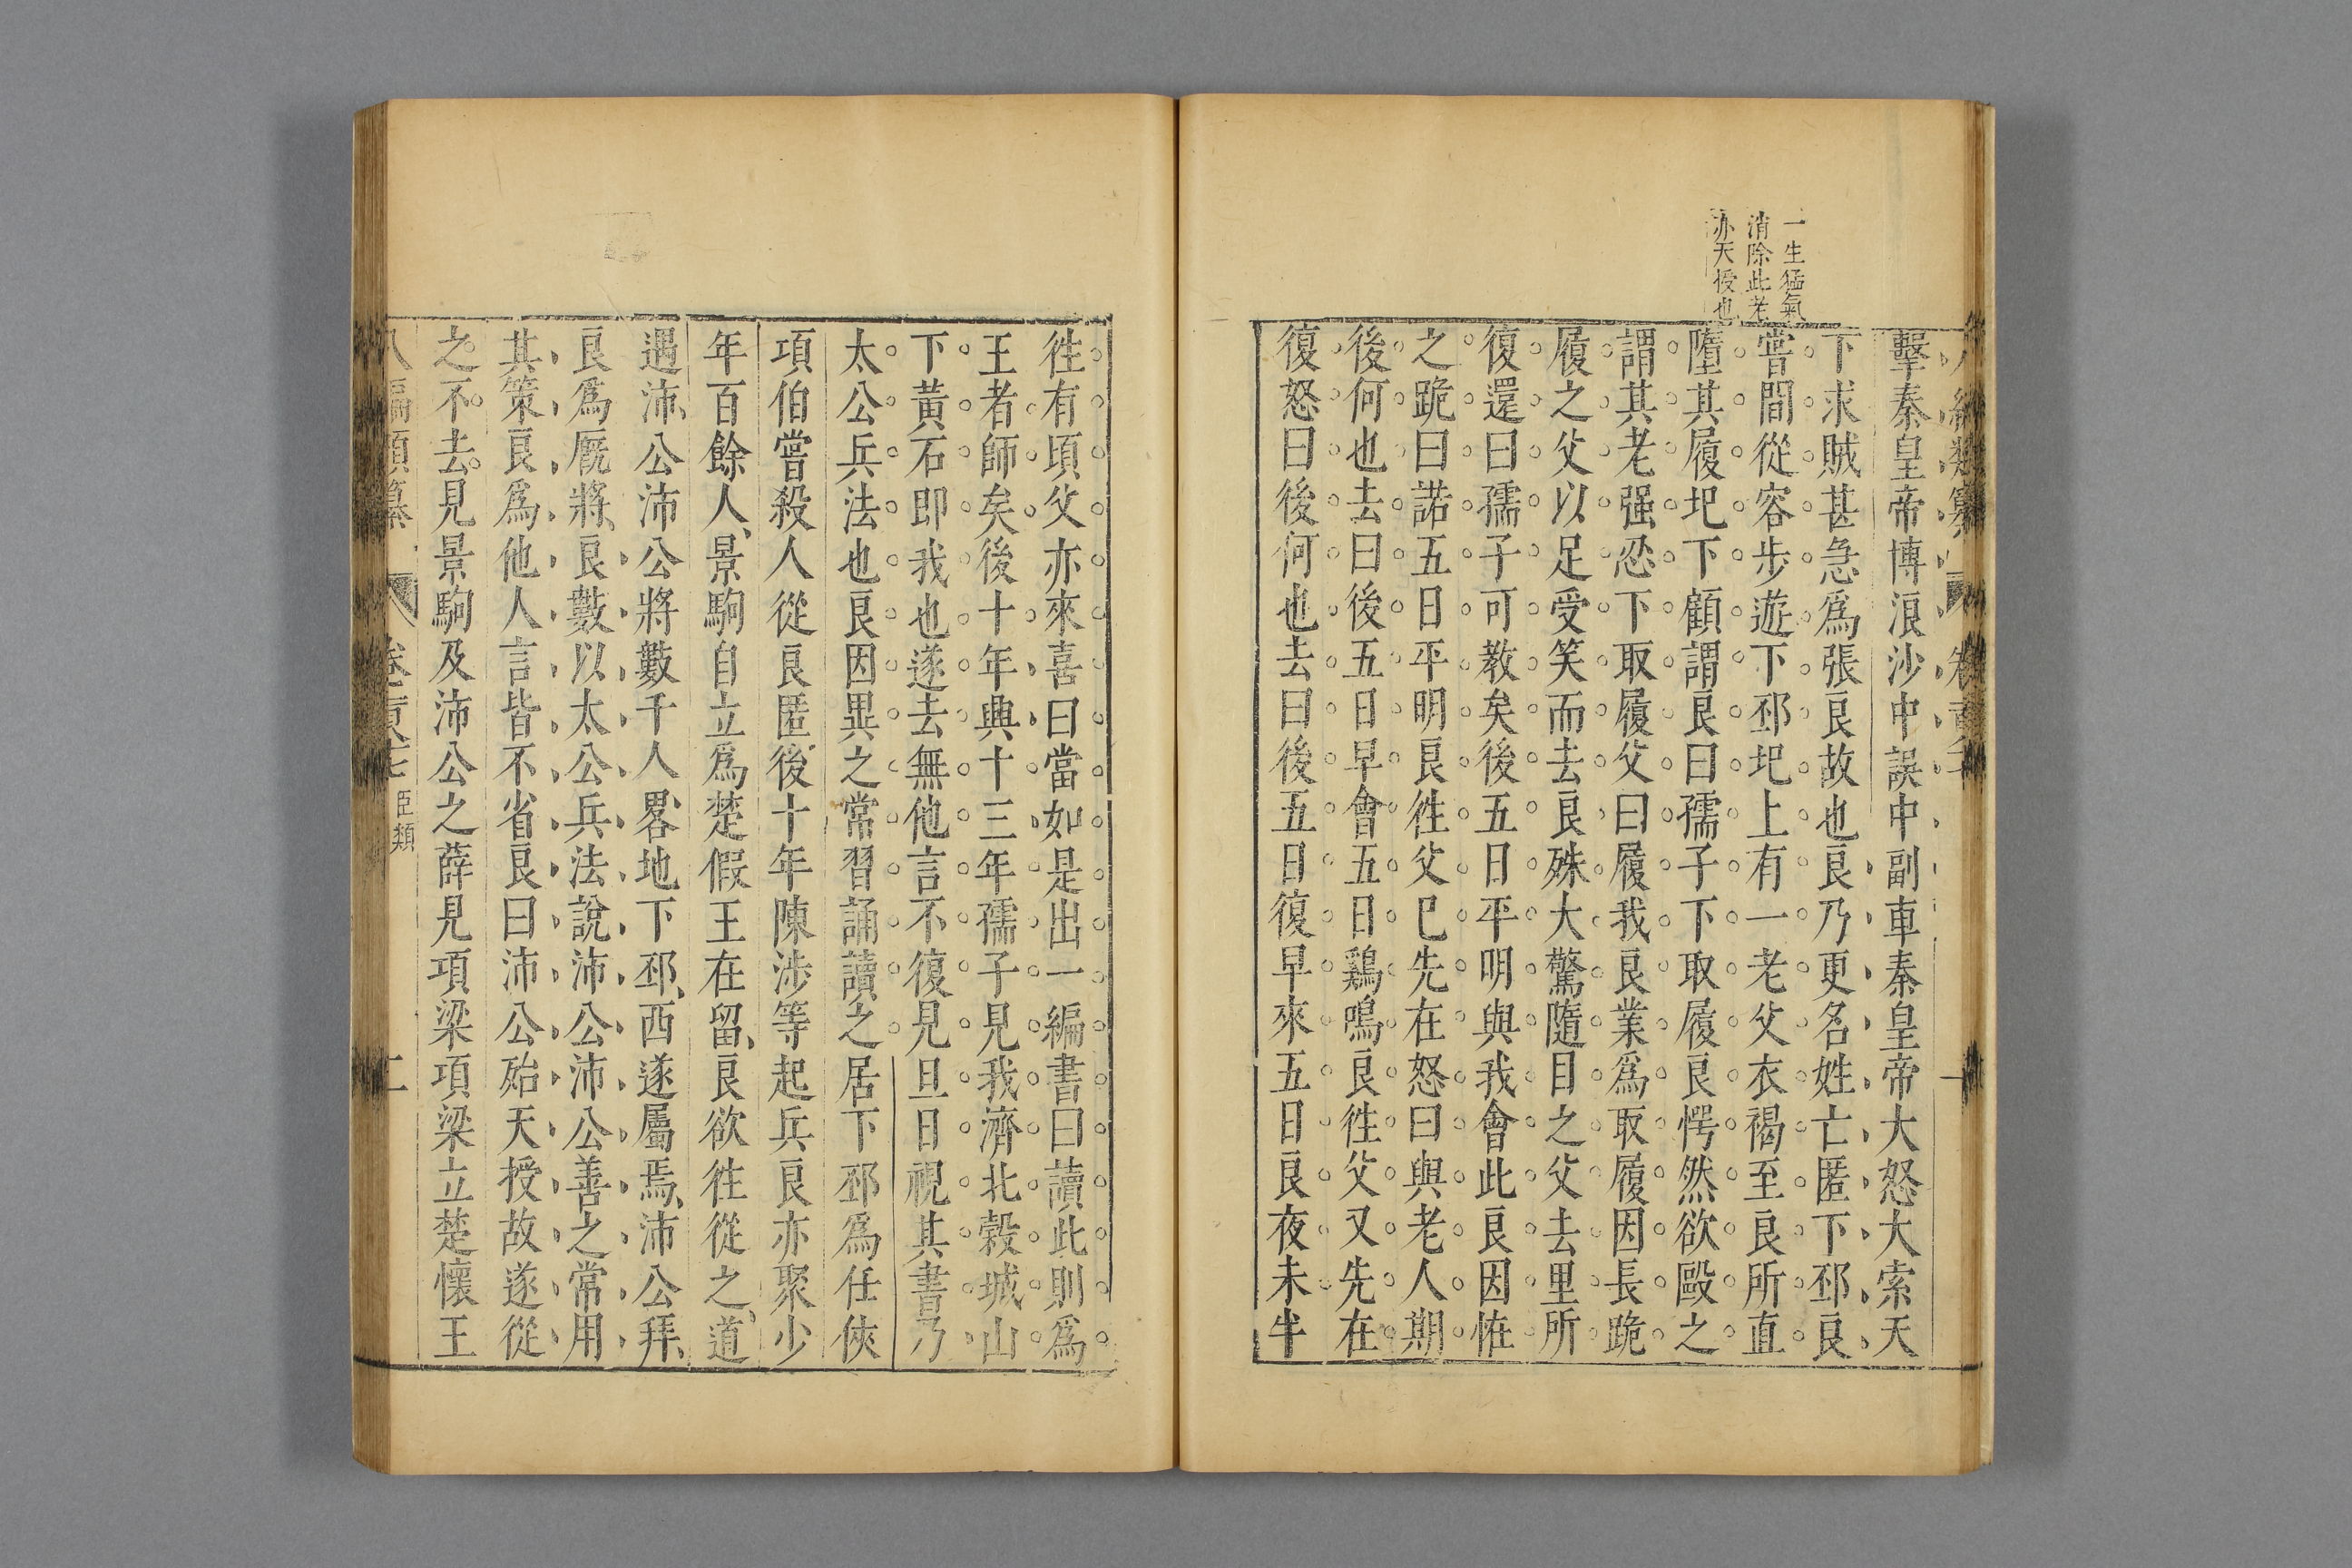 一生猛氣
消除此老
亦天授也
擊秦皇帝博浪沙中誤中副車秦皇帝大怒大索天
下求賊甚急爲張良故也良乃更名姓亡匿下邳良
嘗間從容步遊下邳圯上有一老父衣褐至良所直
墮其履圯下顧謂良曰孺子下取履良愕然欲毆之
謂其老强忍下取履父曰履我良業爲取履因長跪
履之父以足受笑而去良殊大驚隨目之父去里所
復還曰孺子可教矣後五日平明與我會此良因恠
之跪曰諾五日平明良徃父已先在怒曰與老人期
後何也去曰後五日早會五日鷄鳴良徃父又先在
復怒曰後何也去曰後五日復早來五日良夜未半
徃有頃父亦來喜曰當如是出一編書曰讀此則爲
王者師矣後十年興十三年孺子見我濟北榖城山
下黃石即我也遂去無他言不復見旦日視其書乃
太公兵法也良因異之常習誦讀之居下邳爲任俠
項伯嘗殺人從良匿後十年陳涉等起兵良亦聚少
年百餘人景駒自立爲楚假王在留良欲徃從之道
遇沛公沛公將數千人畧地下邳西遂屬焉沛公拜
良爲厩將良數以太公兵法說沛公沛公善之常用
其策良爲他人言皆不省良曰沛公殆天授故遂從
之不去見景駒及沛公之薛見項梁項梁立楚懷王
八編類纂 卷百七 臣類 二